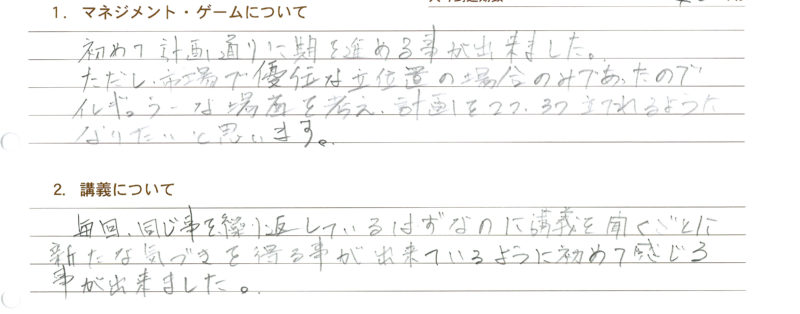 1. マネジメント・ゲームについて
初めて計画通りに期を進める事が出来ました。
ただし、市場で優位な立位置の場合のみであったので
イレギュラーな場面を考え、計画を2つ、3つ立てれるように
なりたいと思います。
2. 講義について
毎回、同じ事を繰り返しているはずなのに講義を聞くごとに
新たな気づきを得る事が出来ているように初めて感じる
事が出来ました。